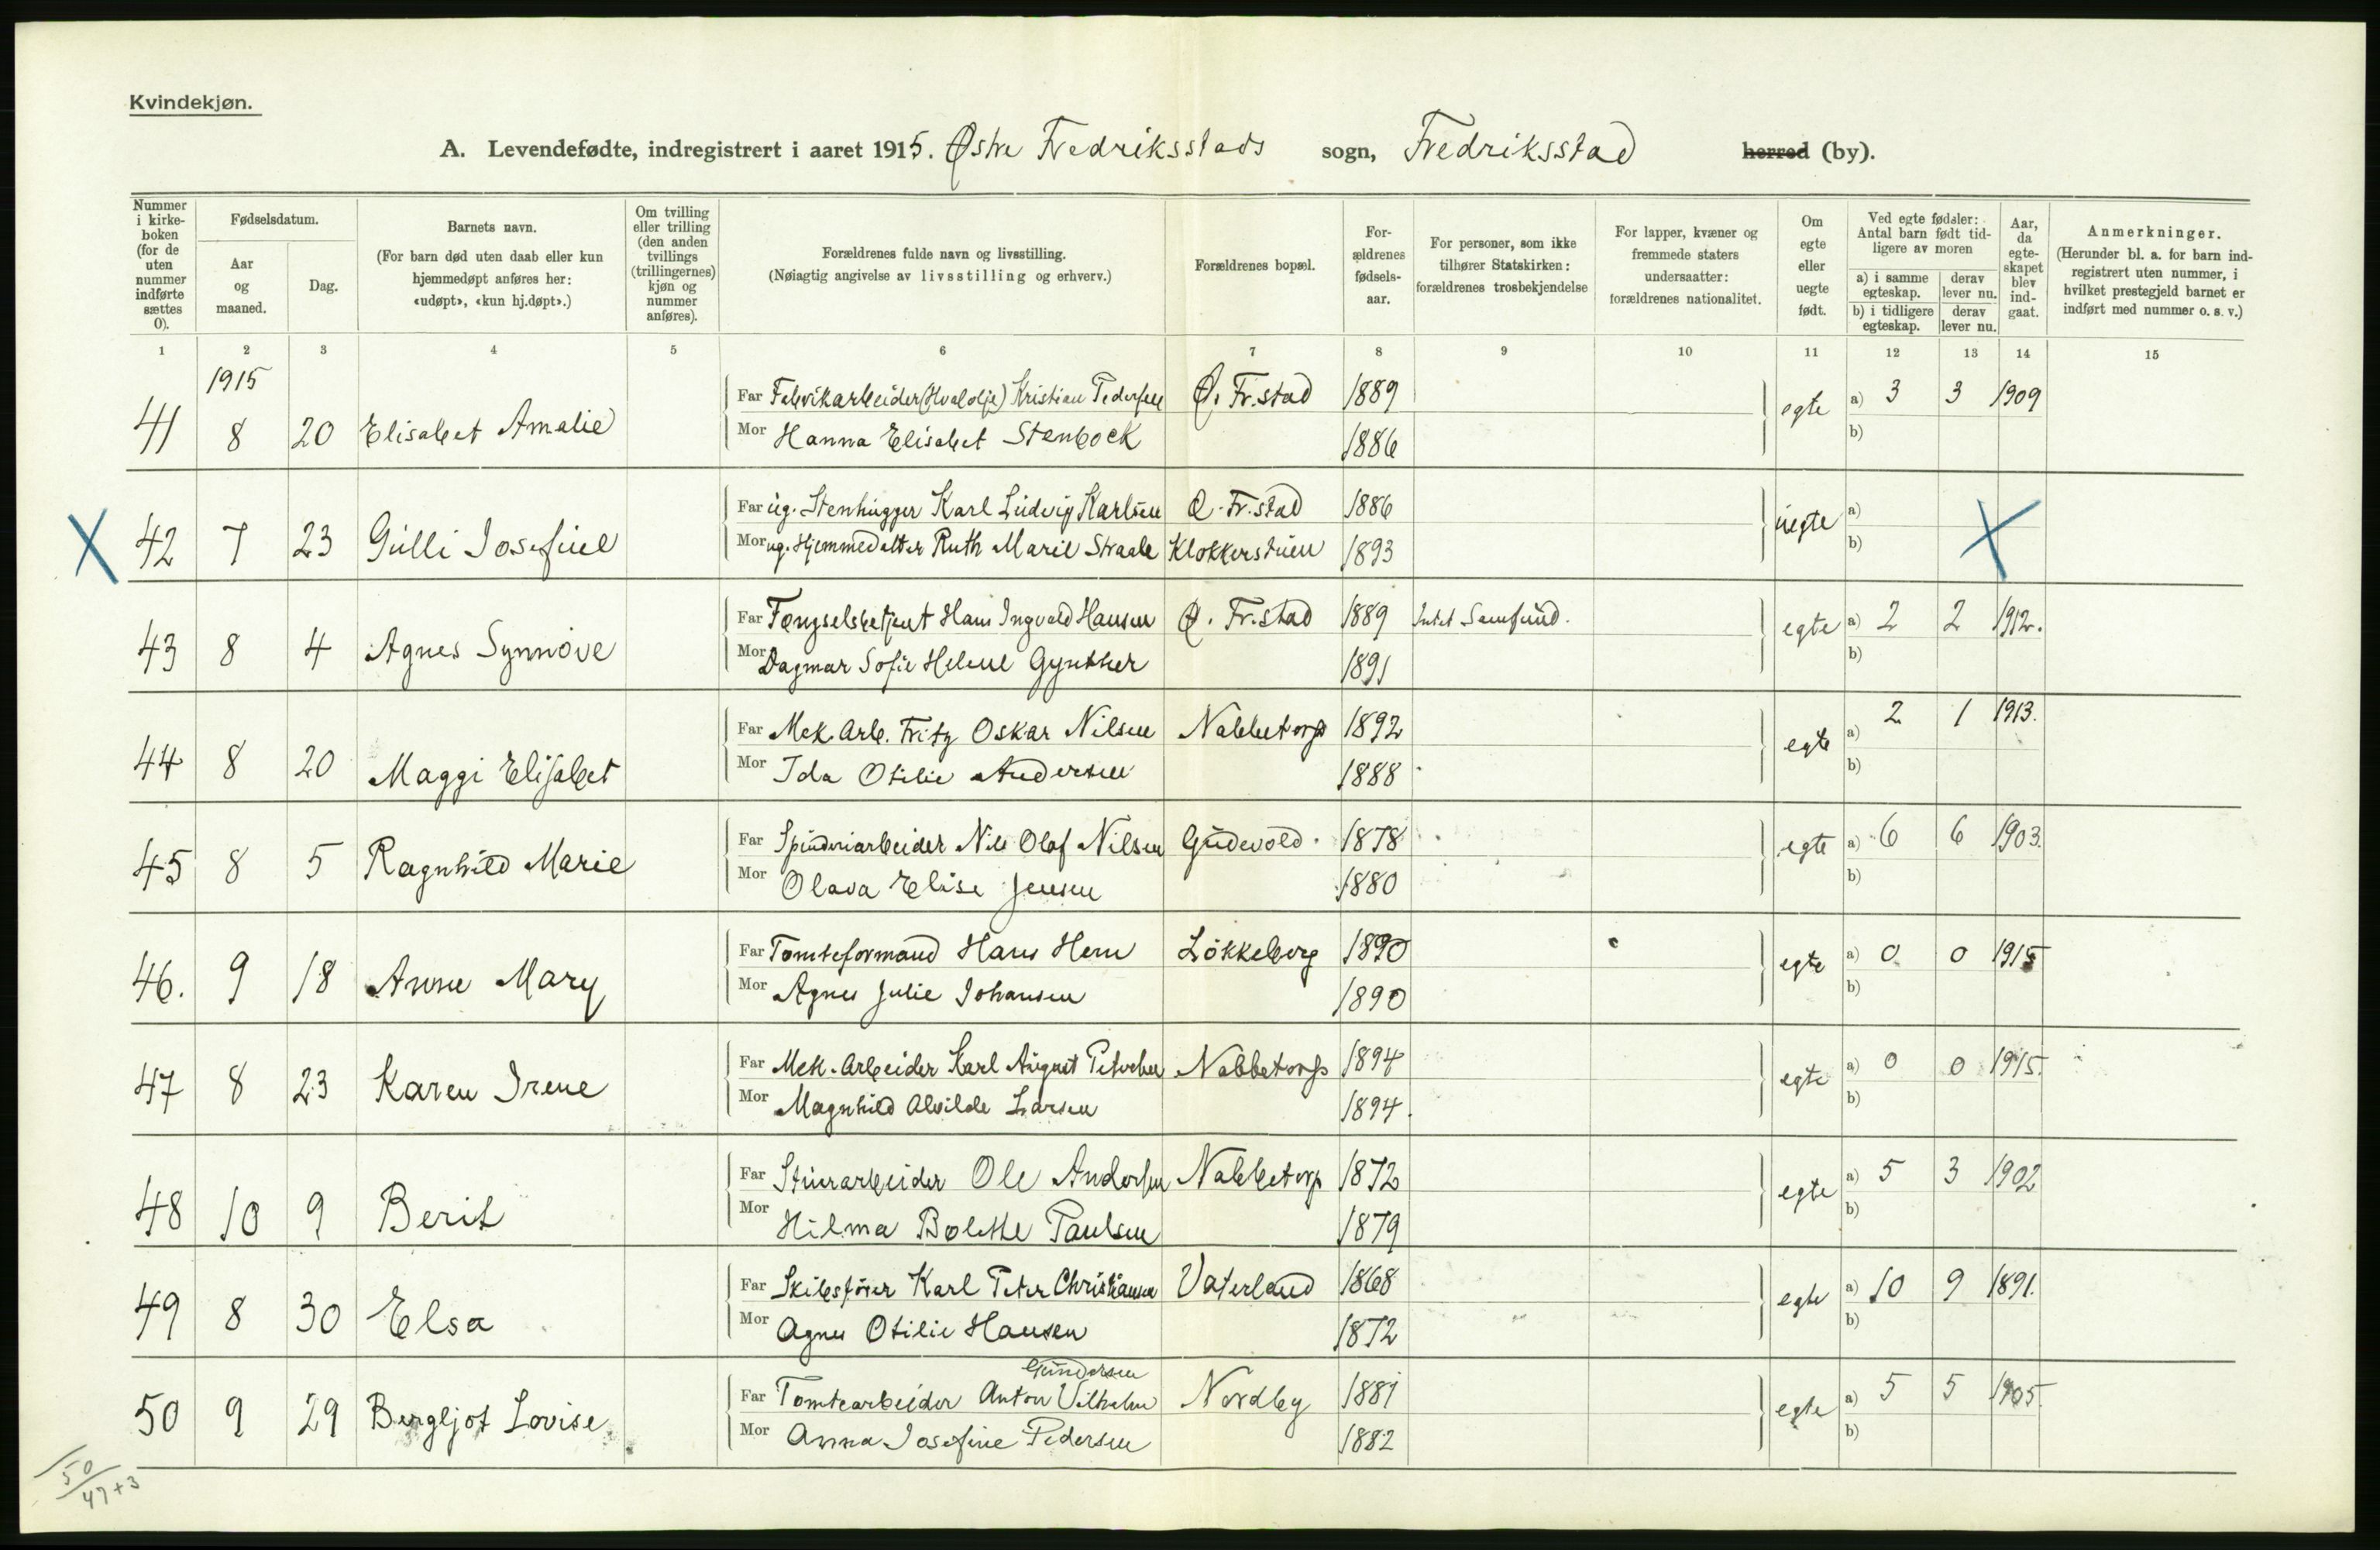 Kvindekjøn.
A. Levendefødte, indregistrert i aaret 1915. Østre Fredriksstads sogn, Fredriksstad herred (by).
Nummer i kirke-boken (for de uten nummer indførte sættes 0).
Fødselsdatum.
Aar og maaned.
Dag.
Barnets navn.
(For barn død uten daab eller kun hjemmedøpt anføres her: «udøpt», «kun hj.døpt».)
Om tvilling eller trilling (den anden tvillings (trillingernes) kjøn og nummer anføres).
Forældrenes fulde navn og livsstilling.
(Nøiagtig angivelse av livsstilling og erhverv.)
Forældrenes bopæl.
For-ældrenes fødsels-aar.
For personer, som ikke tilhører Statskirken: forældrenes trosbekjendelse
For lapper, kvæner og fremmede staters undersaatter: forældrenes nationalitet.
Om egte eller uegte født.
Ved egte fødsler: Antal barn født tid-ligere av moren
a) i samme egteskap. derav lever nu.
b) i tidligere egteskap. derav lever nu.
Aar, da egte-skapet blev ind-gaat.
Anmerkninger.
(Herunder bl. a. for barn ind-registrert uten nummer, i hvilket prestegjeld barnet er indført med nummer o. s. v.)
1 2 3 4 5 6 7 8 9 10 11 12 13 14 15
1915
Far Fabrikarbeider (Hvalolje) Kristian Pedersen Ø. Fr.stad 1889 egte a) 3 3 1909
41 8 20 Elisabet Amalie
Mor Hanna Elisabet Stenbock 1886 b)
Far ug. Stenhugger Karl Ludvig Karlsen Ø. Fr.stad 1886 uegte a)
X 42 7 23 Gulli Josefine X
Mor ug. Hjemmedatter Ruth Marie Straale Klokkerstuen 1893 b)
Far Fengselsbetjent Hans Ingvald Hansen Ø. Fr.stad 1889 Intet Samfund. egte a) 2 2 1912.
43 8 4 Agnes Synnöve
Mor Dagmar Sofie Helene Gynther 1891 b)
Far Mek. Arb. Fritz Oskar Nilsen Nabbetorp 1892 egte a) 2 1 1913.
44 8 20 Maggi Elisabet
Mor Ida Otilie Andersen 1888 b)
Far Spinderiarbeider Nils Olof Nilsen Gudevold 1878 egte a) 6 6 1903.
45 8 5 Ragnhild Marie
Mor Olava Elise Jensen 1880 b)
Far Tomteformand Hans Hern Lökkeberg 1890 egte a) 0 0 1915
46. 9 18 Anne Mary
Mor Agnes Julie Johansen 1890 b)
Far Mek. Arbeider Karl August Petersen Nabbetorp 1894 egte a) 0 0 1915.
47 8 23 Karen Irene
Mor Magnhild Alvilde Larsen 1894. b)
Far Stuerarbeider Ole Andersen Nabbetorp 1872 egte a) 5 3 1902
48 10 9 Berit
Mor Hilma Bolette Paulsen 1879 b)
Far Skibsfører Karl Peter Christiansen Vaterland 1868 egte a) 10 9 1891.
49 8 30 Elsa
Mor Agnes Otilie Hansen 1872 b)
Gundersen
Far Tomtearbeider Anton Vilhelm Nordby 1881 egte a) 5 5 1905.
50 9 29 Bergljot Lovise
Mor Anna Josefine Pedersen 1882 b)
50
47+3